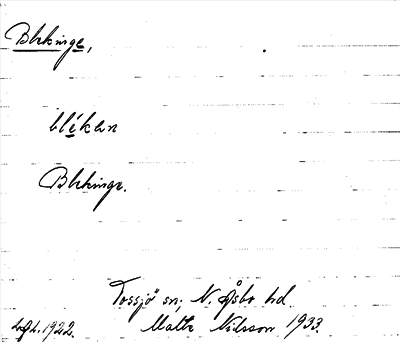 Blekinge,
blékan
Blekinge.
Tossjö sn; N. Åsbo hd.
Matts Nilsson 1933.
1922.